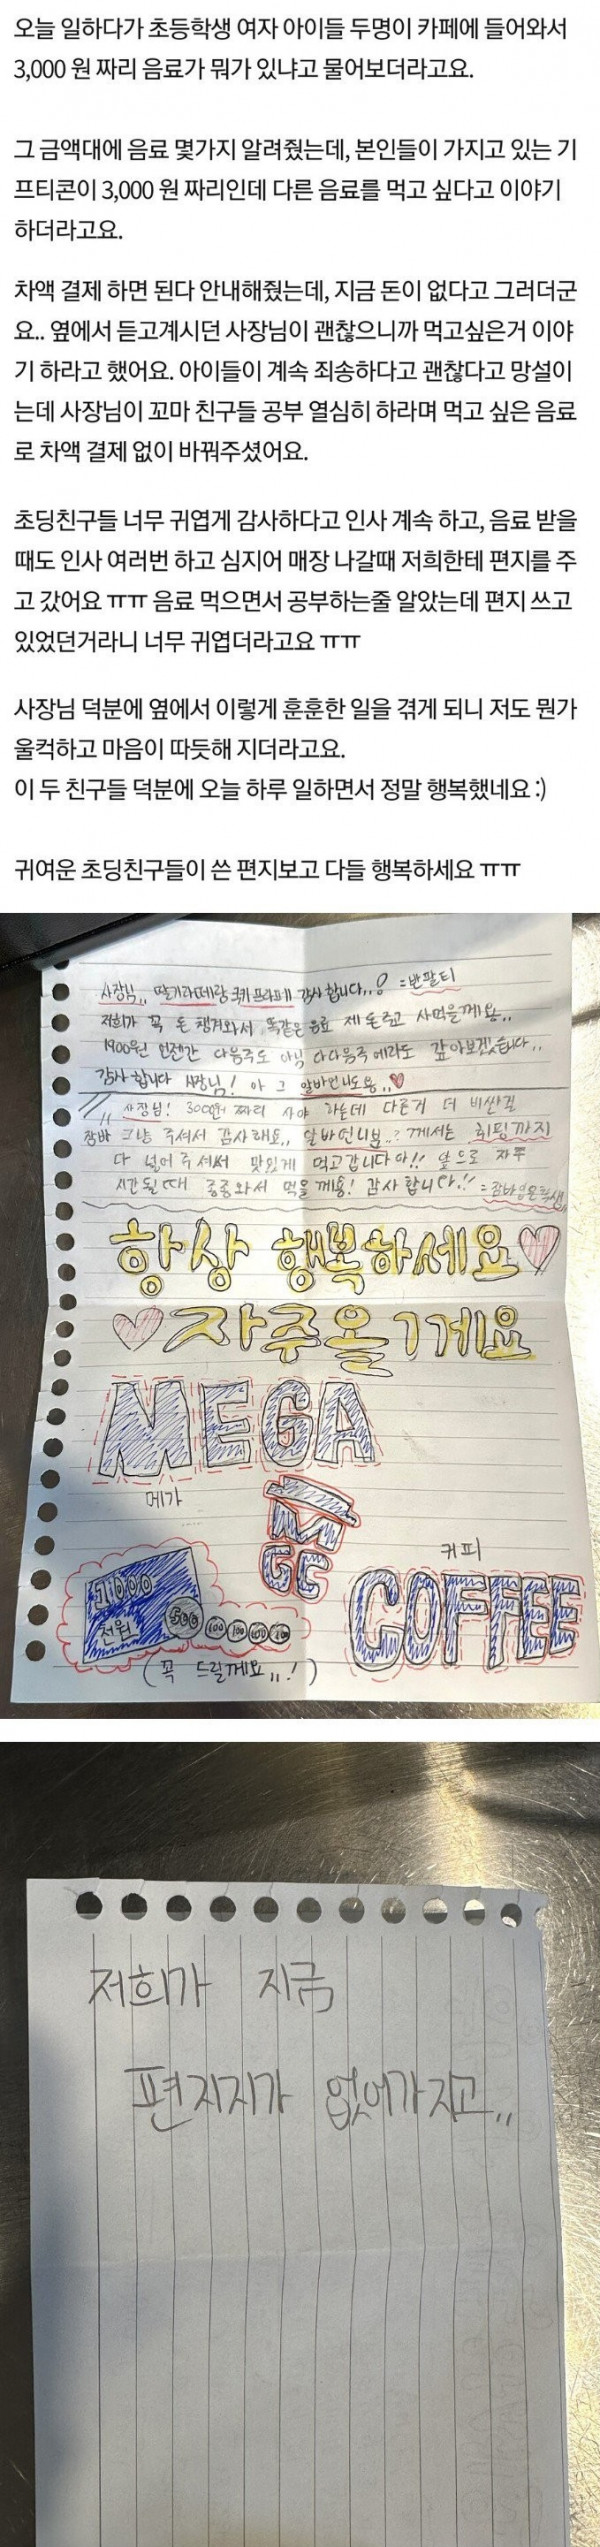 오늘 일하다가 초등학생 여자 아이들 두명이 카페에 들어와서
3,000 원 짜리 음료가 뭐가 있냐고 물어보더라고요.
그 금액대에 음료 몇가지 알려줬는데, 본인들이 가지고 있는 기
프티콘이 3,000 원 짜리인데 다른 음료를 먹고 싶다고 이야기
하더라고요.
차액 결제 하면 된다 안내해줬는데, 지금 돈이 없다고 그러더군
요.. 옆에서 듣고계시던 사장님이 괜찮으니까 먹고싶은거 이야
기 하라고 했어요. 아이들이 계속 죄송하다고 괜찮다고 망설이
는데 사장님이 꼬마 친구들 공부 열심히 하라며 먹고 싶은 음료
로 차액 결제 없이 바꿔주셨어요.
초딩친구들 너무 귀엽게 감사하다고 인사 계속 하고, 음료 받을
때도 인사 여러번 하고 심지어 매장 나갈때 저희한테 편지를 주
고 갔어요 ㅠㅠ 음료 먹으면서 공부하는줄 알았는데 편지 쓰고
있었던거라니 너무 귀엽더라고요 ㅠㅠ
사장님 덕분에 옆에서 이렇게 훈훈한 일을 겪게 되니 저도 뭔가
울컥하고 마음이 따듯해 지더라고요.
이 두 친구들 덕분에 오늘 하루 일하면서 정말 행복했네요 :)
귀여운 초딩친구들이 쓴 편지보고 다들 행복하세요 ㅠㅠ
사장님,, 딸기라떼랑 쿠키프라페 감사합니다,,! =반팔티
저희가 꼭 돈 챙겨와서 똑같은 음료 제돈주고 사먹을께용,,
1900원 언젠간 다음주도 아님 다다음주에라도 갚아보겠습니다,,
감사합니다 사장님! 아 그 알바언니도용,,♥
사장님! 3000원 짜리 사야 하는데 다른거 더 비싼걸
그냥 주셔서 감사해요,, 알바언니분,,? 께서는 휘핑까지
다 넣어주셔써 맛있게 먹고갑니다아!! 앞으로 자주
시간될때 종종와서 먹을께용! 감사합니다!!
항상 행복하세요♡
♡자주올게요
MEGA
메가
MGC
커피
COFFEE
1000
천원
500
100 100 100 100
(꼭 드릴께요,,!)
저희가 지금
편지지가 없어가지고,,